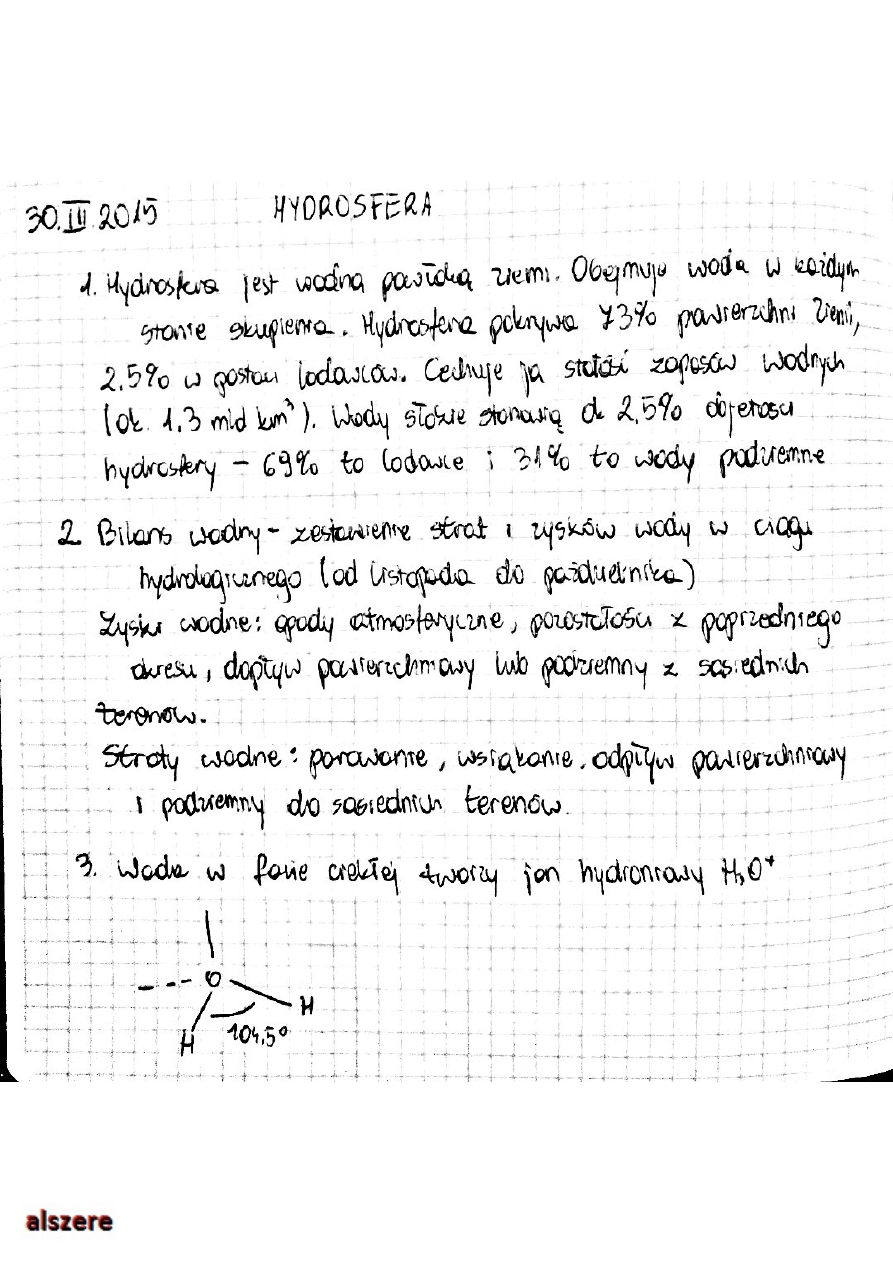 30.III.2015 HYDROSFERA
1. Hydrosfera jest wodną powłoką ziemi. Obejmuje woda w każdym
stanie skupienia. Hydrosfera pokrywa 73% powierzchni Ziemi,
2,5% w postaci lodawców. Cechuje ją stałość zapasów wodnych
(ok. 1,3 mld km³). Wody słodkie stanowią ok 2,5% objętości
hydrosfery - 69% to lodowce i 31% to wody podziemne
2. Bilans wodny - zestawienie strat i zysków wody w ciągu
hydrologicznego (od listopada do października)
Zyski wodne: opady atmosferyczne, pozostałości z poprzedniego
okresu, dopływ powierzchniowy lub podziemny z sąsiednich
terenów.
Straty wodne: parowanie, wsiąkanie, odpływ powierzchniowy
i podziemny do sąsiednich terenów.
3. Woda w fazie ciekłej tworzy jon hydroniowy H₃O⁺
O
H
H 104,5°
alszere